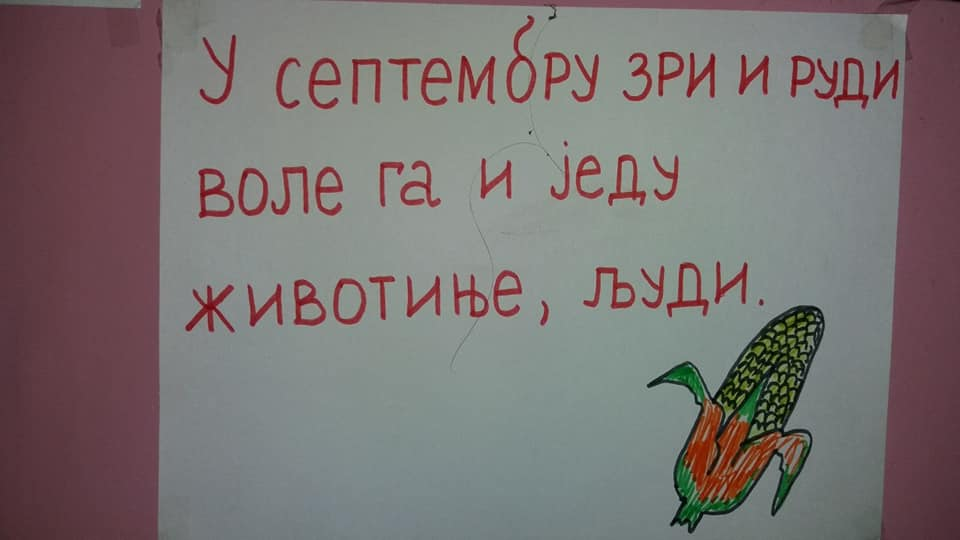 У септембру зри и руди
воле га и једу
животиње, људи.